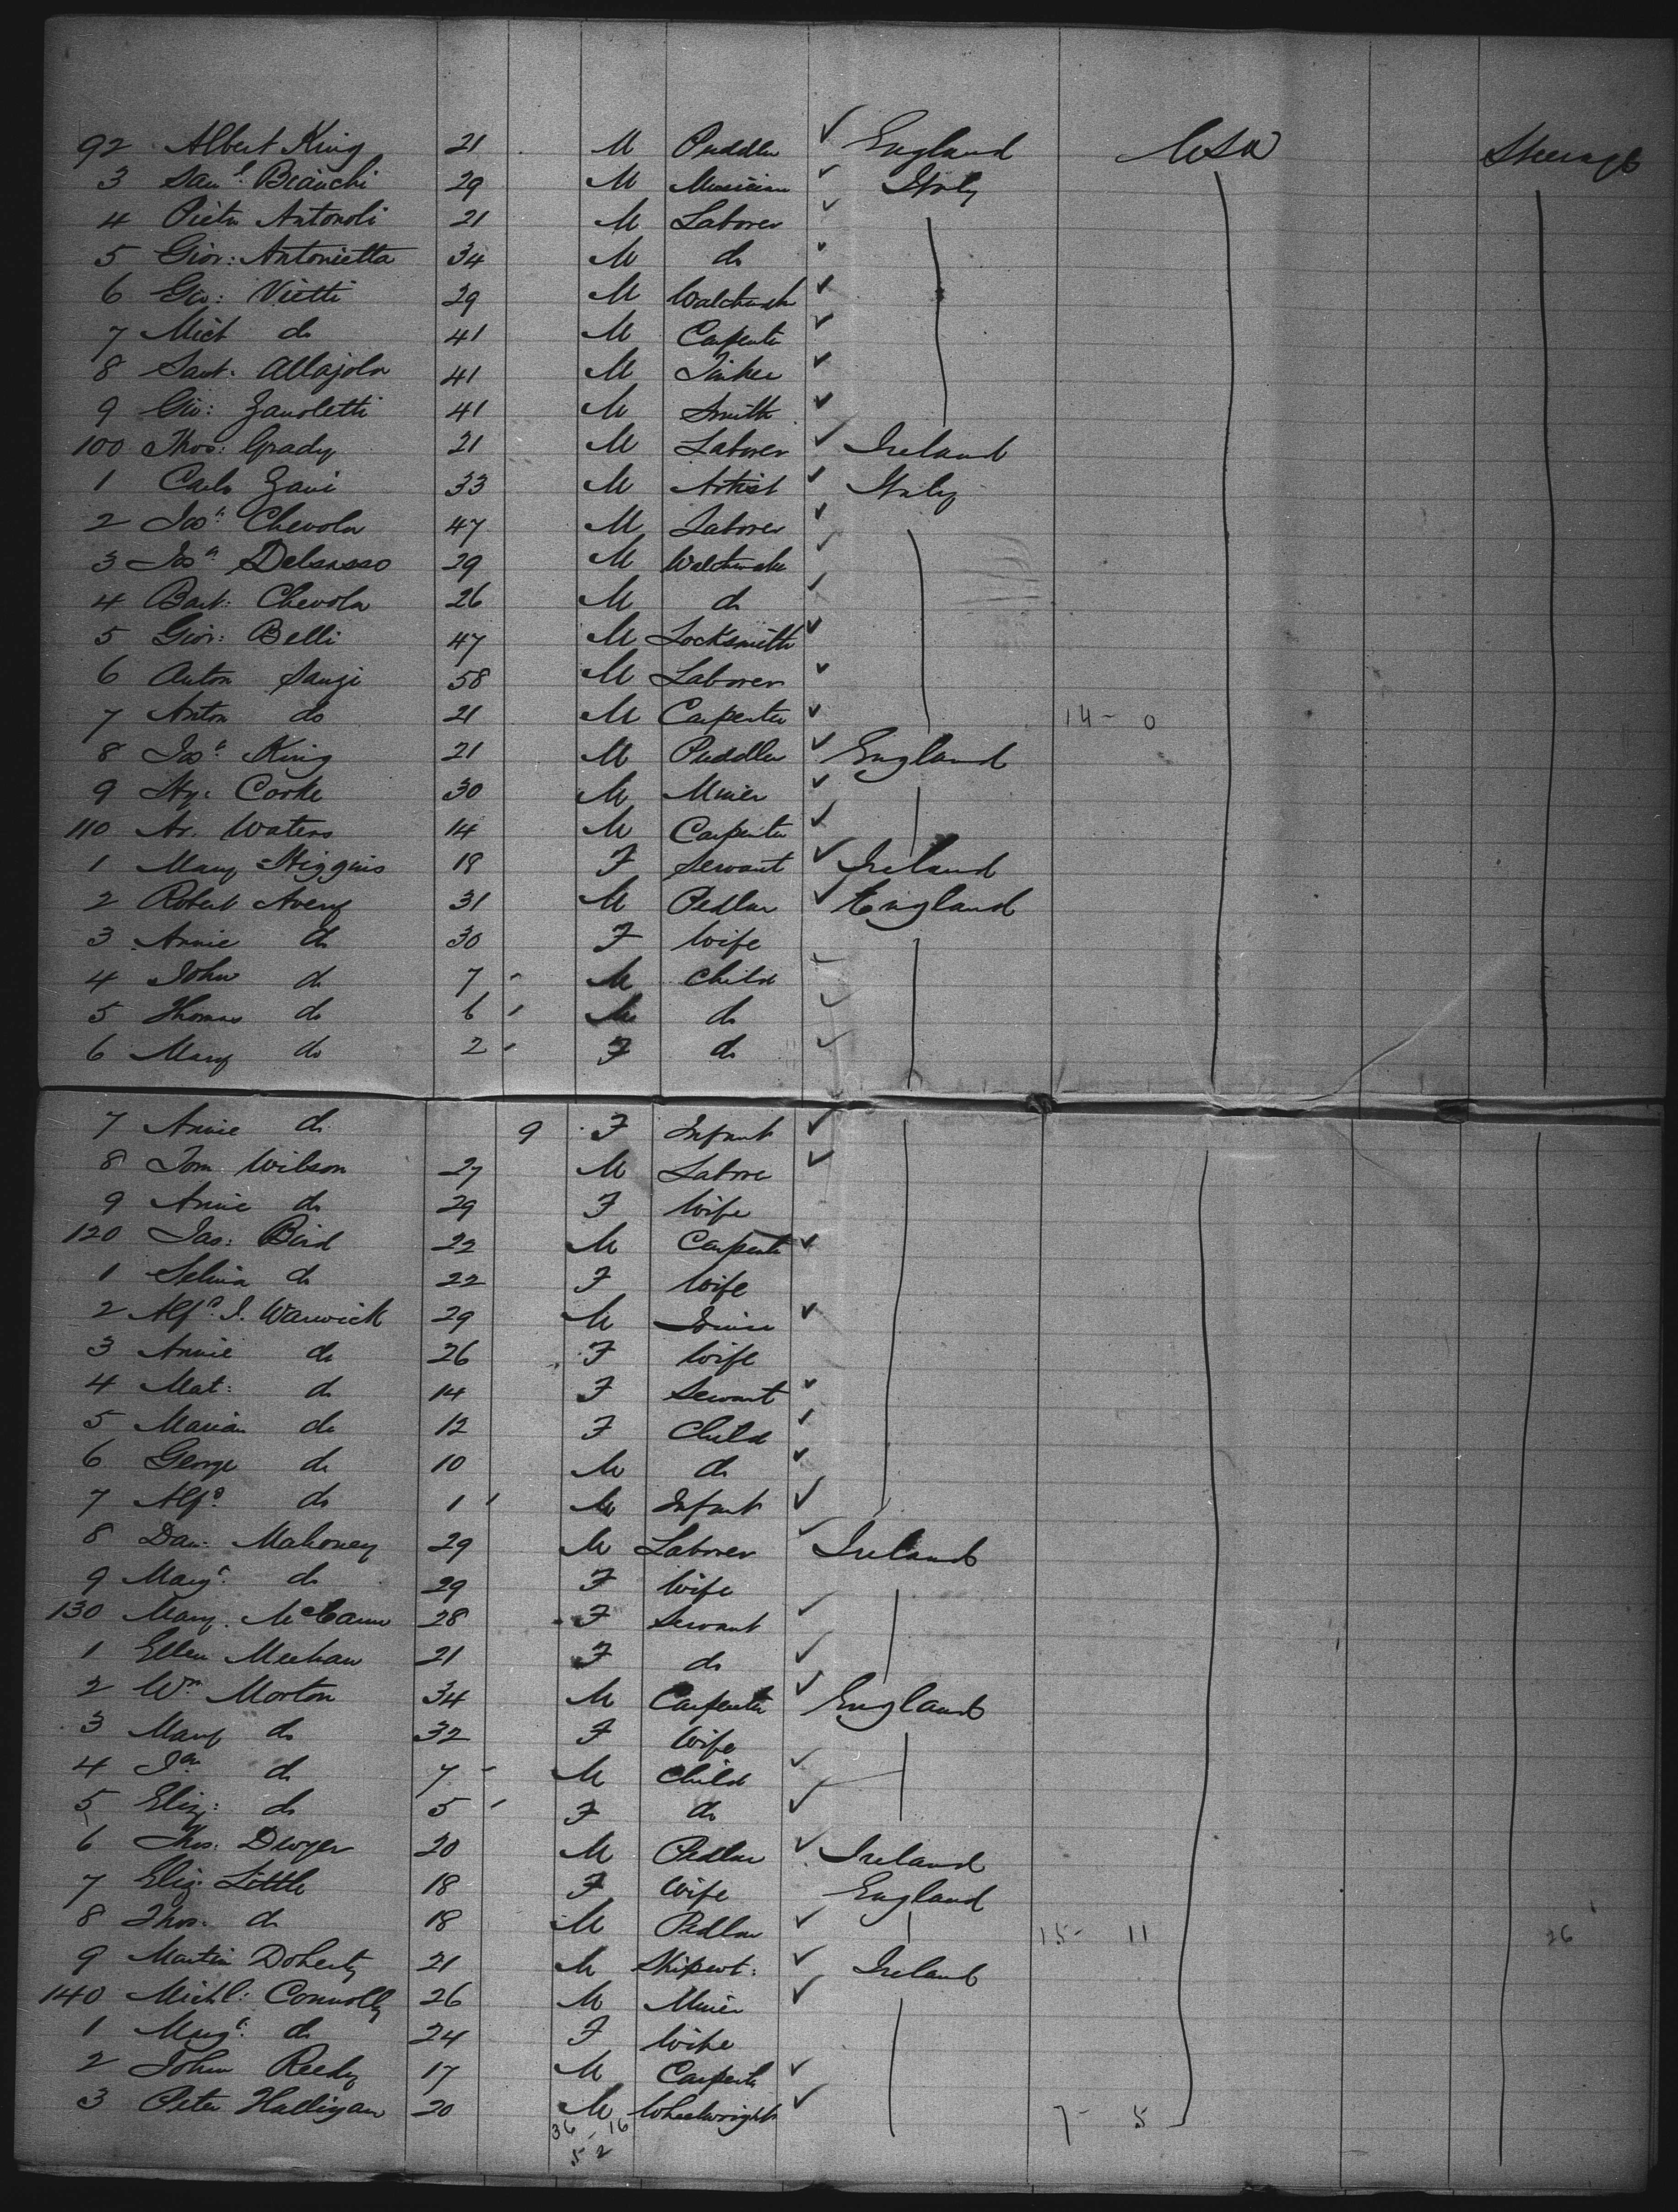 92 Albert King 21 M Puddler ✓ England USA Steerage
3 Saml. Bianchi 29 M Musician ✓ Italy
4 Pietro Antonoli 21 M Laborer ✓
5 Giov: Antonietta 34 M do ✓
6 Gio: Vietti 29 M Watchmak ✓
7 Mich do 41 M Carpenter ✓
8 Sant. Allajola 41 M Tinker ✓
9 Gio: Zanoletti 41 M Smith ✓
100 Thos: Grady 21 M Laborer ✓ Ireland
1 Carlo Zani 33 M Artist ✓ Italy
2 Jos: Chevola 47 M Laborer ✓
3 Jos Delsasso 29 M Watchmaker ✓
4 Bart: Chevola 26 M do ✓
5 Giov: Belli 47 M Locksmith ✓
6 Anton Sauzi 58 M Laborer ✓
7 Anton do 21 M Carpenter ✓ 14 - 0
8 Jos: King 21 M Puddler ✓ England
9 Hy: Cooke 30 M Miner ✓
110 Ar. Waters 14 M Carpenter ✓
1 Mary Higgins 18 F Servant ✓ Ireland
2 Robert Avery 31 M Pedlar ✓ England
3 Annie do 30 F Wife
4 John do 7 M Child ✓
5 Thomas do 6 M do ✓
6 Mary do 2 F do ✓
7 Annie do 9 F Infant ✓
8 Tom Wilson 27 M Labore ✓
9 Annie do 29 F Wife
120 Jas: Bird 22 M Carpente ✓
1 Selina do 22 F Wife
2 Alfd. J. Warwick 29 M Joiner ✓
3 Annie do 26 F Wife
4 Mat: do 14 F Servant ✓
5 Marian do 12 F Child ✓
6 George do 10 M do ✓
7 Alfd do 1 M Infant ✓
8 Dan: Mahoney 29 M Laborer ✓ Ireland
9 Margt: do 29 F Wife
130 Mary McCann 28 F Servant ✓
1 Ellen Meehan 21 F do ✓
2 Wm Morton 34 M Carpenter ✓ England
3 Mary do 32 F Wife
4 Jas do 7 M Child ✓
5 Eliz: do 5 F do ✓
6 Thos: Dwyer 20 M Pedlar ✓ Ireland
7 Eliz: Little 18 F Wife England
8 Thos. do 18 M Pedlar ✓ 15 - 11 26
9 Martin Doherty 21 M Shipwt: ✓ Ireland
140 Michl: Connolly 26 M Miner ✓
1 Margt: do 24 F Wife
2 John Reedy 17 M Carpente ✓
3 Peter Halligan 20 M Wheelwright ✓ 7 - 5
36 - 16
52